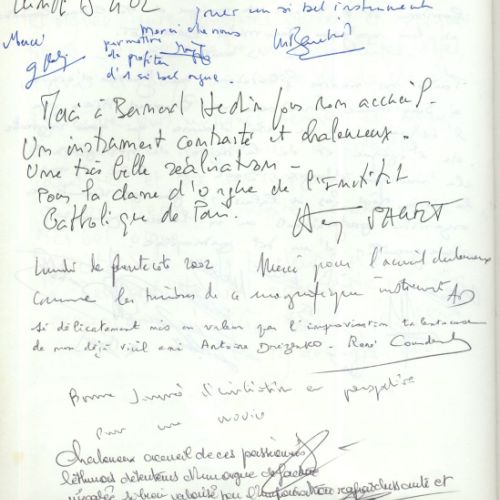 Lundi 15 4 02
jouer un si bel instrument
Merci
merci de nous
permettre
de profiter
d'1 si bel orgue.
Merci à Bernard Hedin pour son accueil.
Un instrument contrasté et chaleureux.
Une très belle réalisation –
Pour la classe d'orgue de l'Institut
Catholique de Paris.
Lundi de pentecôte 2002 Merci pour l'accueil chaleureux
comme les timbres de ce magnifique instrument
si délicatement mis en valeur par l'improvisation talentueuse
de mon déjà vieil ami Antoine
Bonne journée d'initiation en perspective
pour une novice
Chaleureux accueil de ces passionnés
détenteurs d'un orgue de
si bien valorisé par l'improvisation et